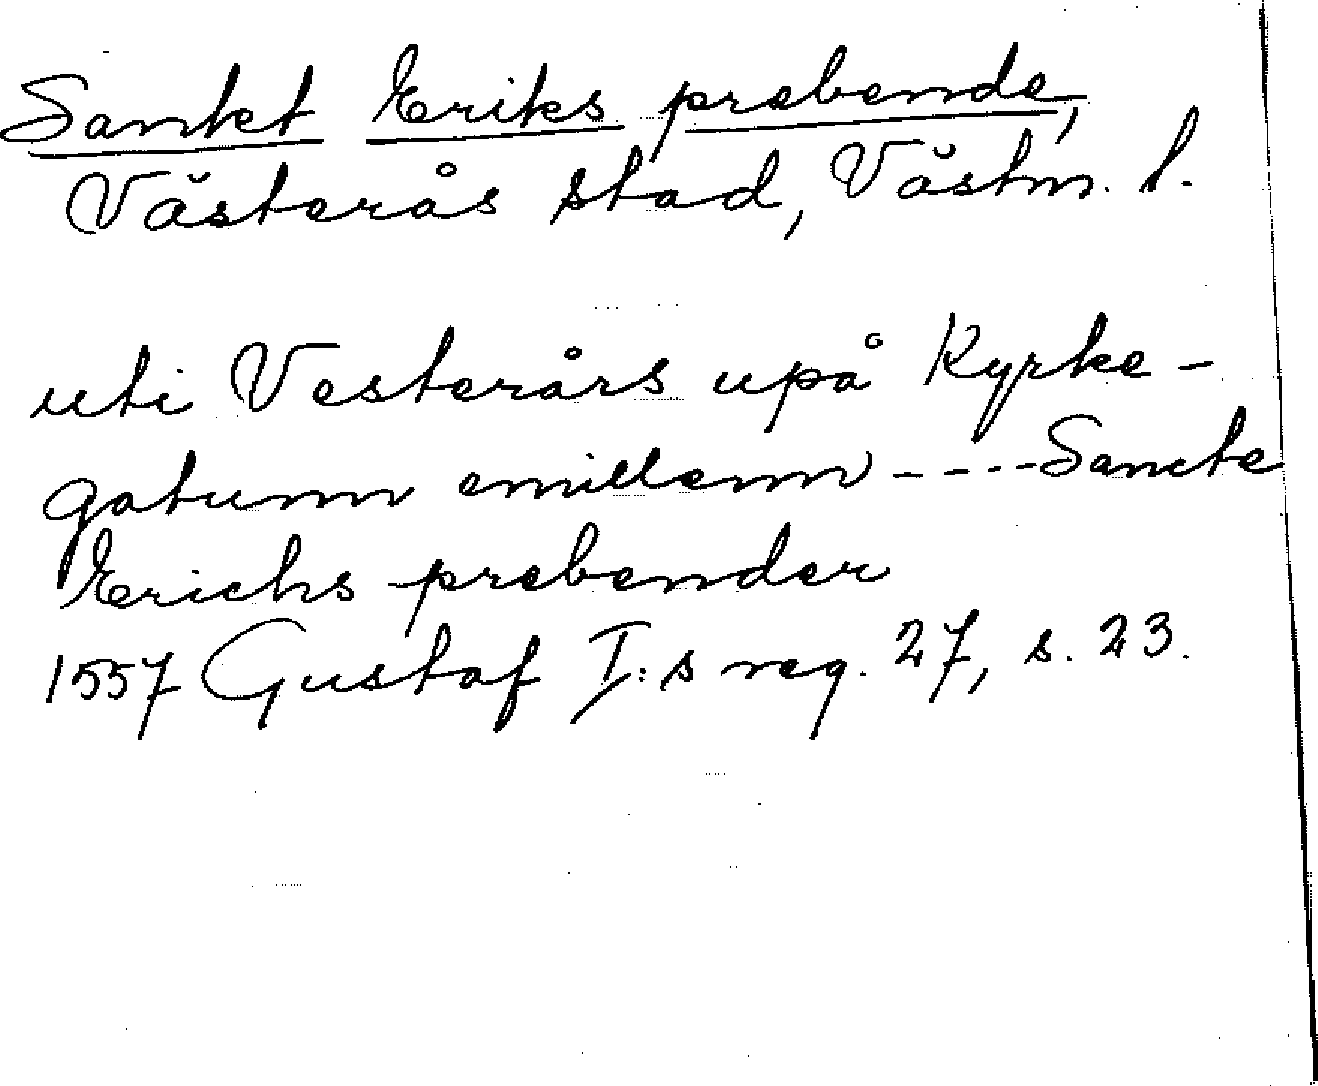 Sankt Eriks prebende,
Västerås stad, Västm. l.
uti Vesterårs upå Kyrke-
gatunn emillenn - - - - Sancte
Erichs prebender
1557 Gustaf I:s reg. 27, s. 23.